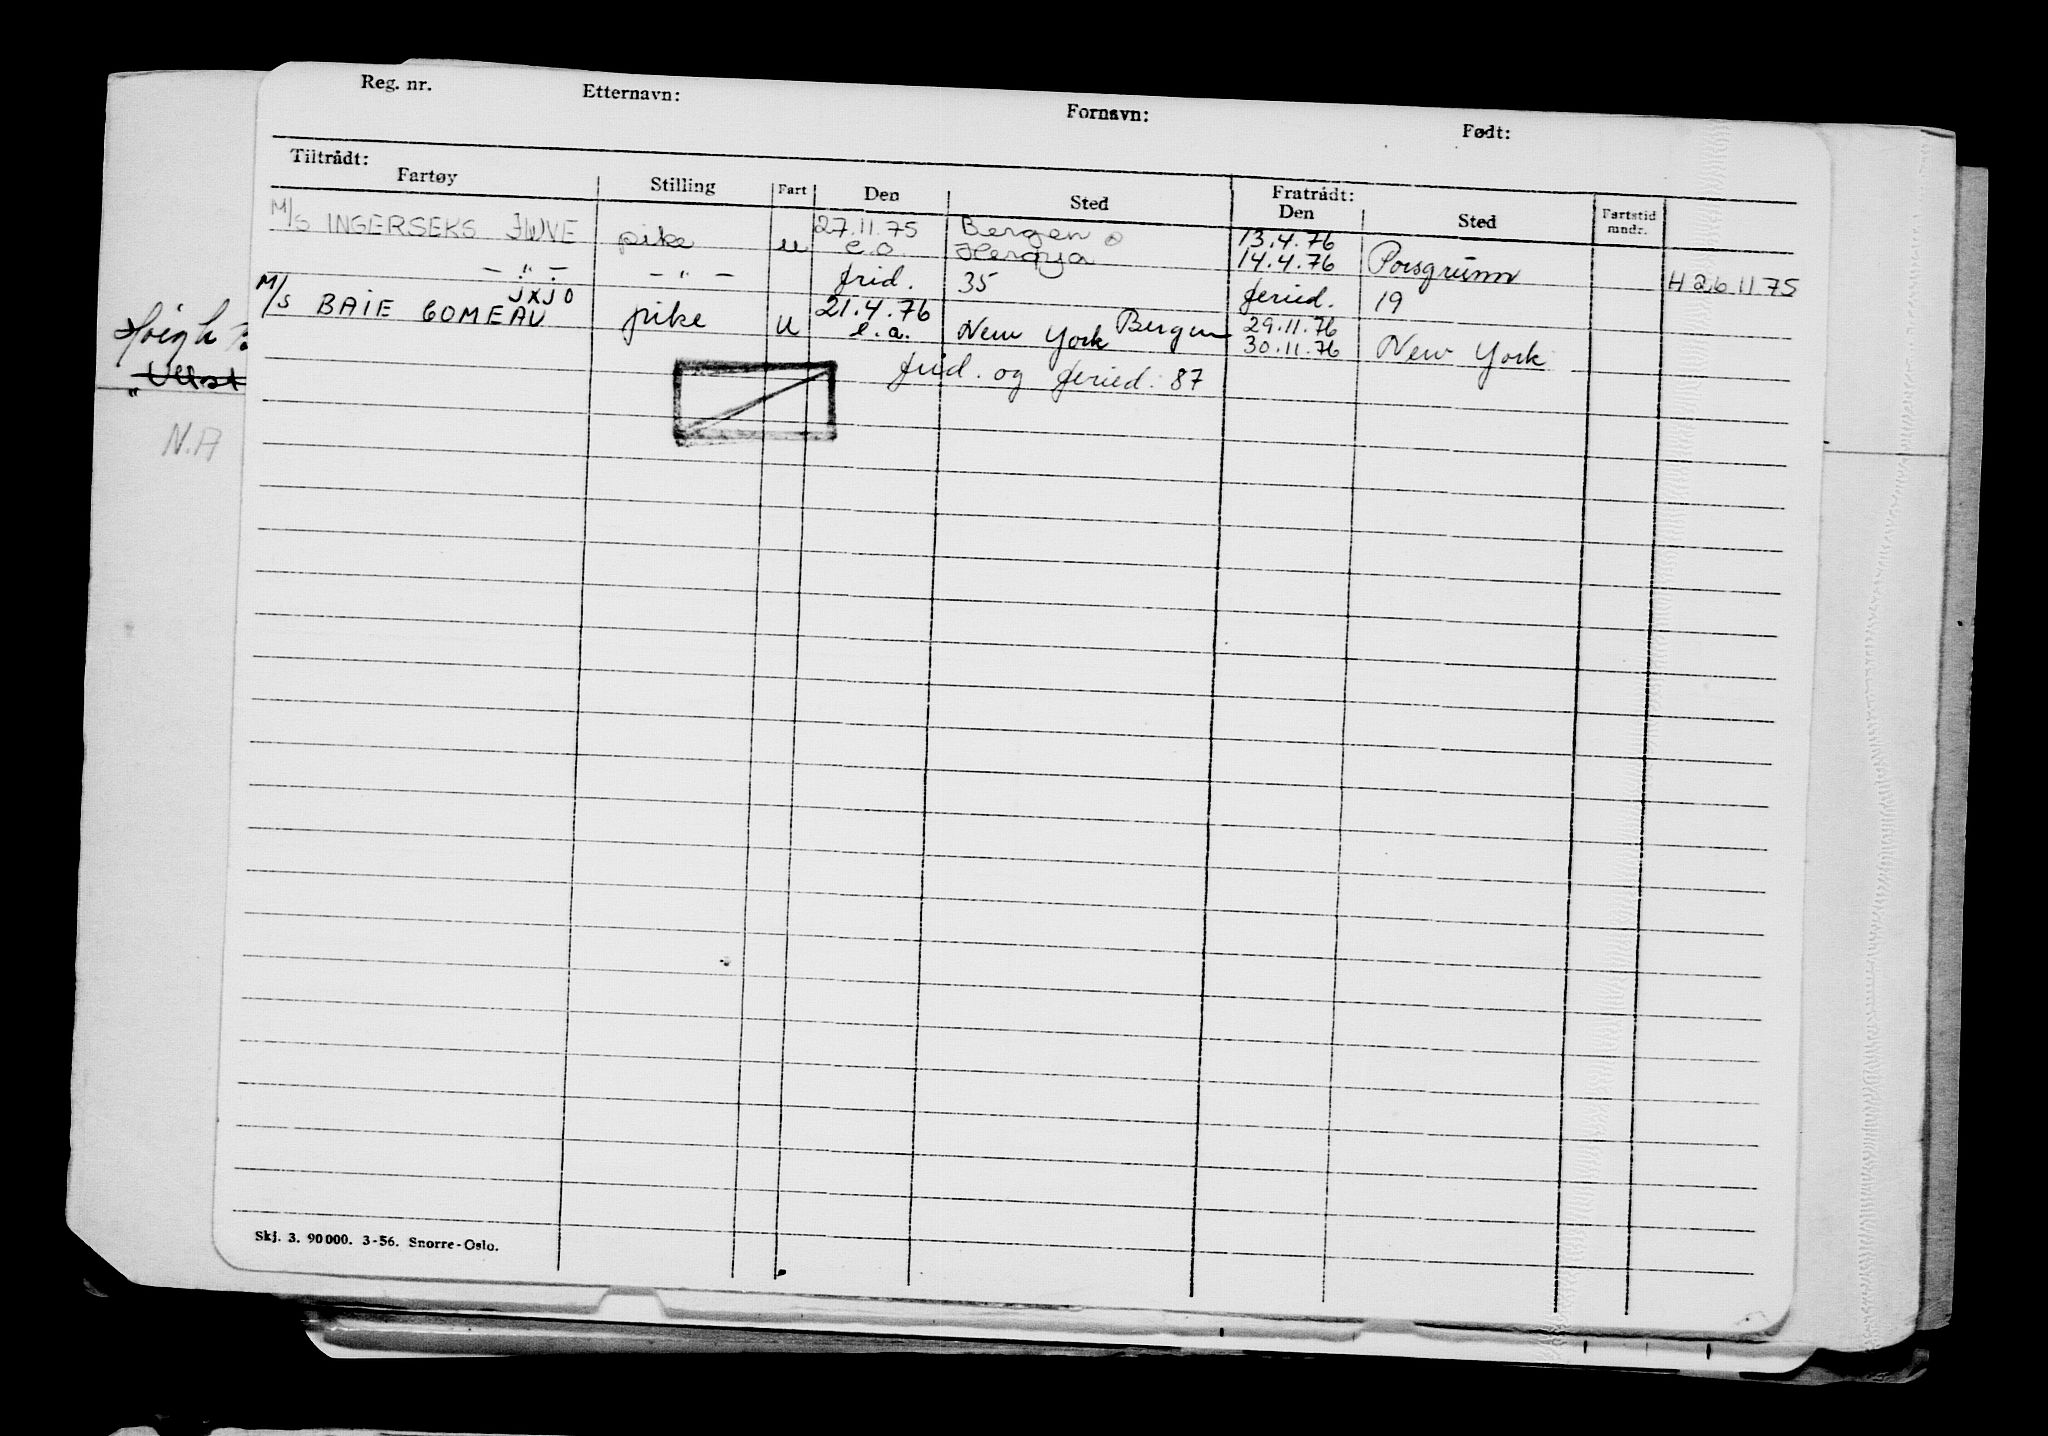 Reg. nr. Etternavn: Fornavn: Født:
Tiltrådt: Fratrådt:
Fartøy Stilling Fart Den Sted Den Sted Fartstid mndr.
M/S INGERSEKS JWVE pike u 27.11.75 Bergen 13.4.76
e.o. Herøya 14.4.76 Porsgrunn H 26 11 75
— " — — " — frid. 35 feried. 19
JXJO
M/S BAIE COMEAU pike u 21.4.76 Bergen 29.11.76
e.a. New York 30.11.76 New York
frid. og feried. 87
Høegh
N.A
Skj. 3. 90000. 3-56. Snorre-Oslo.